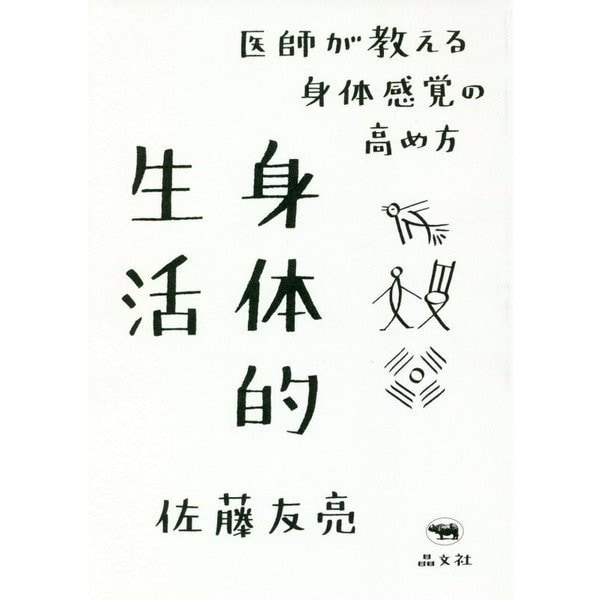 医師が教える
身体感覚の
高め方
身体的
生活
佐藤友亮
晶文社